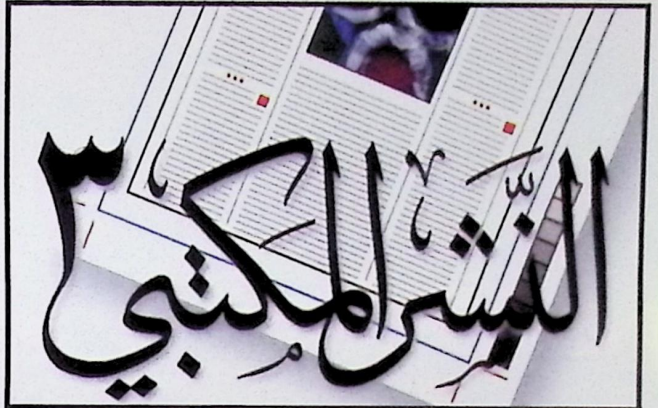 النَّشر المَكتبي ٣